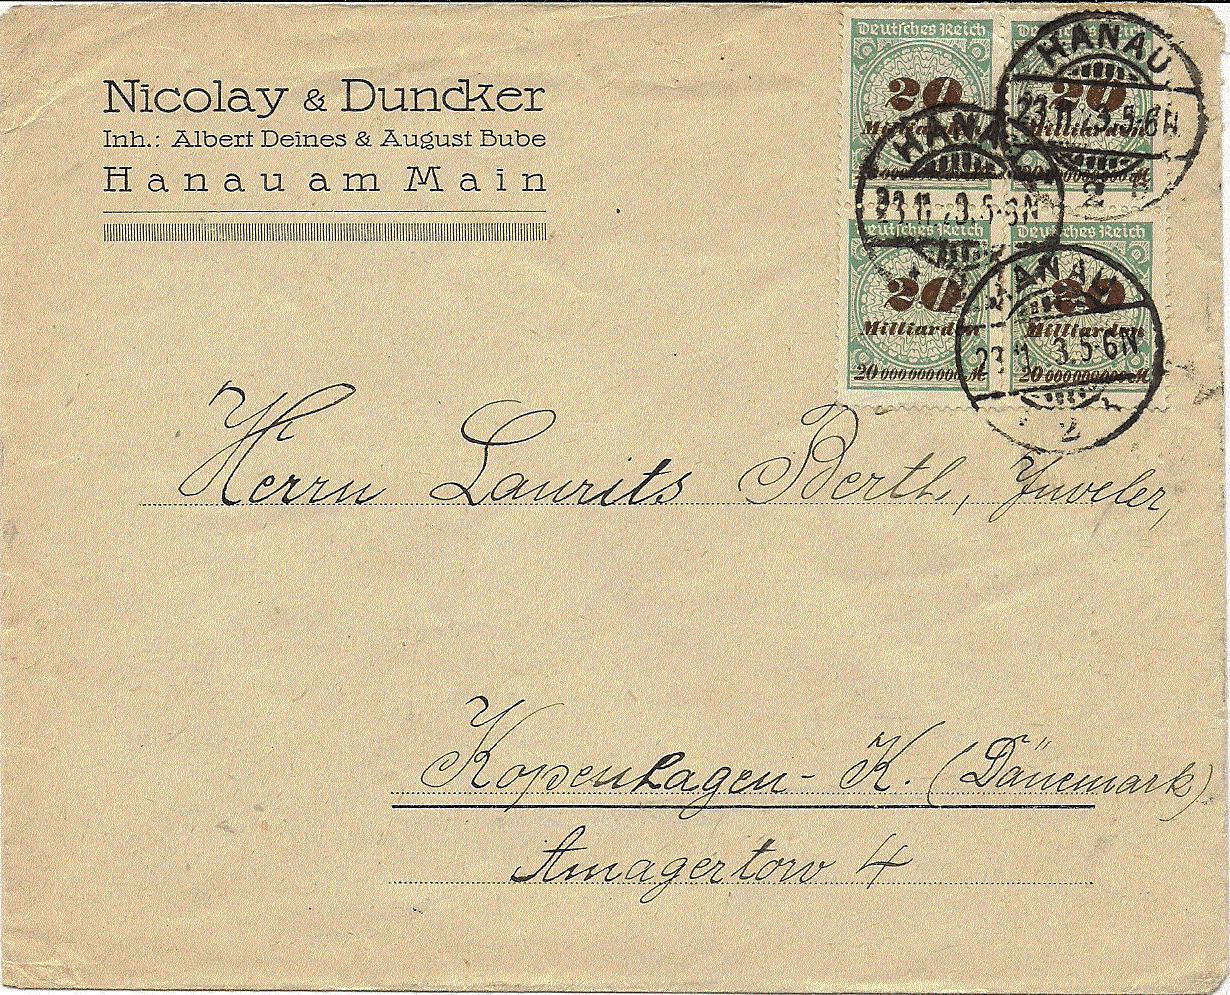 Nicolay & Duncker
Inh.: Albert Deines & August Bube
Hanau am Main
Deutsches Reich
20
Milliarden
Deutsches Reich
20
Milliarden
Deutsches Reich
20
Milliarden
20 000 000 000 M
Deutsches Reich
20
Milliarden
20 000 000 000 M
HANAU
23.11.23.5-6N
2
HANAU
23.11.23.5-6N
HANAU
23.11.23.5-6N
2
Herrn Laurits Berth, Juweler,
Kopenhagen - K. (Dänemark)
Amagertorv 4